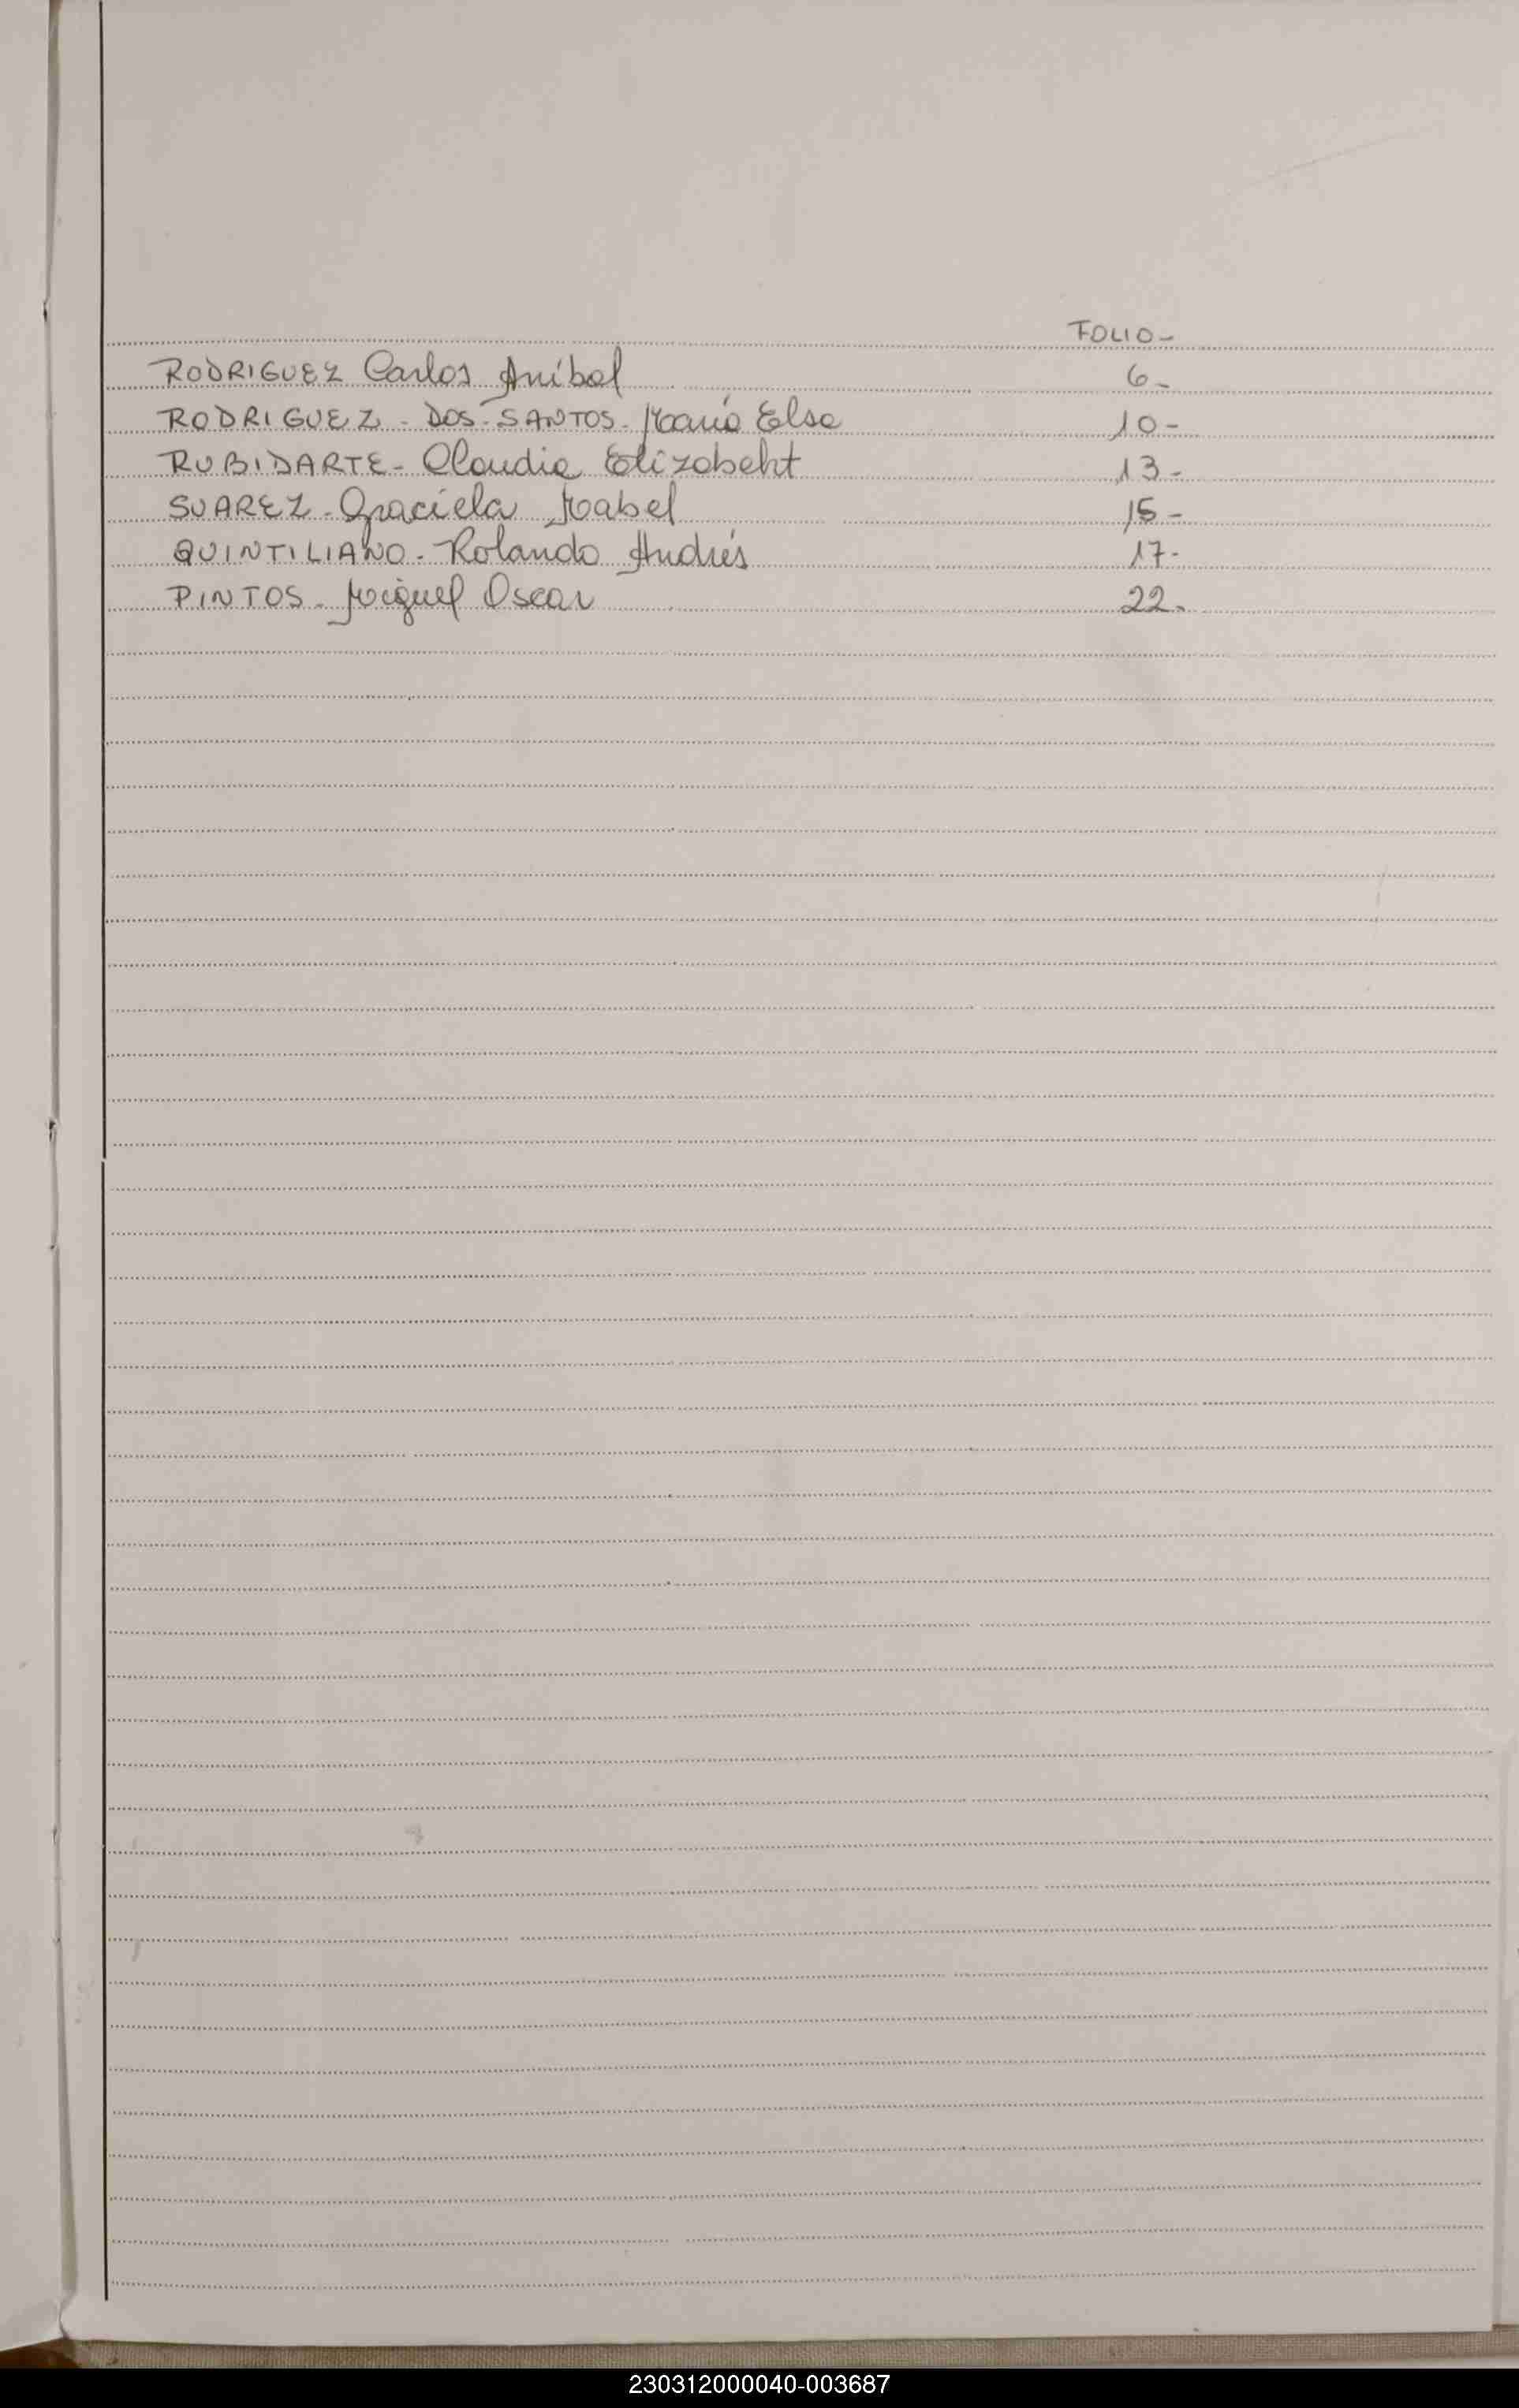 FOLIO-
RODRIGUEZ Carlos Aníbal 6-
RODRIGUEZ - DOS-SANTOS- María Elsa 10-
RUBIDARTE- Claudia Elizabeht 13-
SUAREZ- Graciela Mabel 15-
QUINTILIANO- Rolando Andrés 17-
PINTOS- Miguel Oscar 22.
230312000040-003687